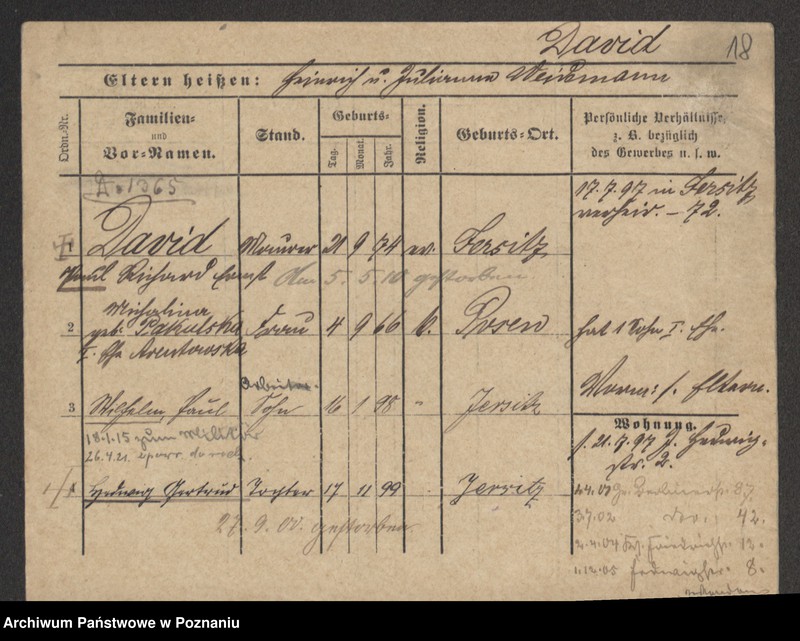 David 18
Eltern heißen: Heinrich u. Julianna Weidmann
Ordn.-Nr. Familien- und Vor-Namen. Stand. Geburts- Tag. Monat. Jahr. Religion. Geburts-Ort. Persönliche Verhältnisse, z. B. bezüglich des Gewerbes u. s. w.
A. 1365
17.7.97 in Jersitz
verheir. – 72.
1 David Maurer 21 9 74 ev. Jersitz
Paul Richard Ernst den 5.5.10 gestorben
Michalina
2 geb. Pakulska Frau 4 9 66 k. Posen hat 1 Sohn I. Ehe.
I. Ehe Arentowska
Arbeiter.
Vorm: s. Eltern.
3 Wilhelm Paul Sohn 16 1 98 " Jersitz
Wohnung.
18.1.15 zum Militär
26.4.21.
s. 21.7.97 J. Hedwig-
str. 2.
4 Hedwig Gertrud Tochter 17 11 99 Jersitz
Gr. Berlinerstr. 87.
27.9.00. gestorben
3.7.02 do. 42.
2.4.04 Friedrichstr. 12.
1.12.05 Hedwigstr. 8.
Archiwum Państwowe w Poznaniu